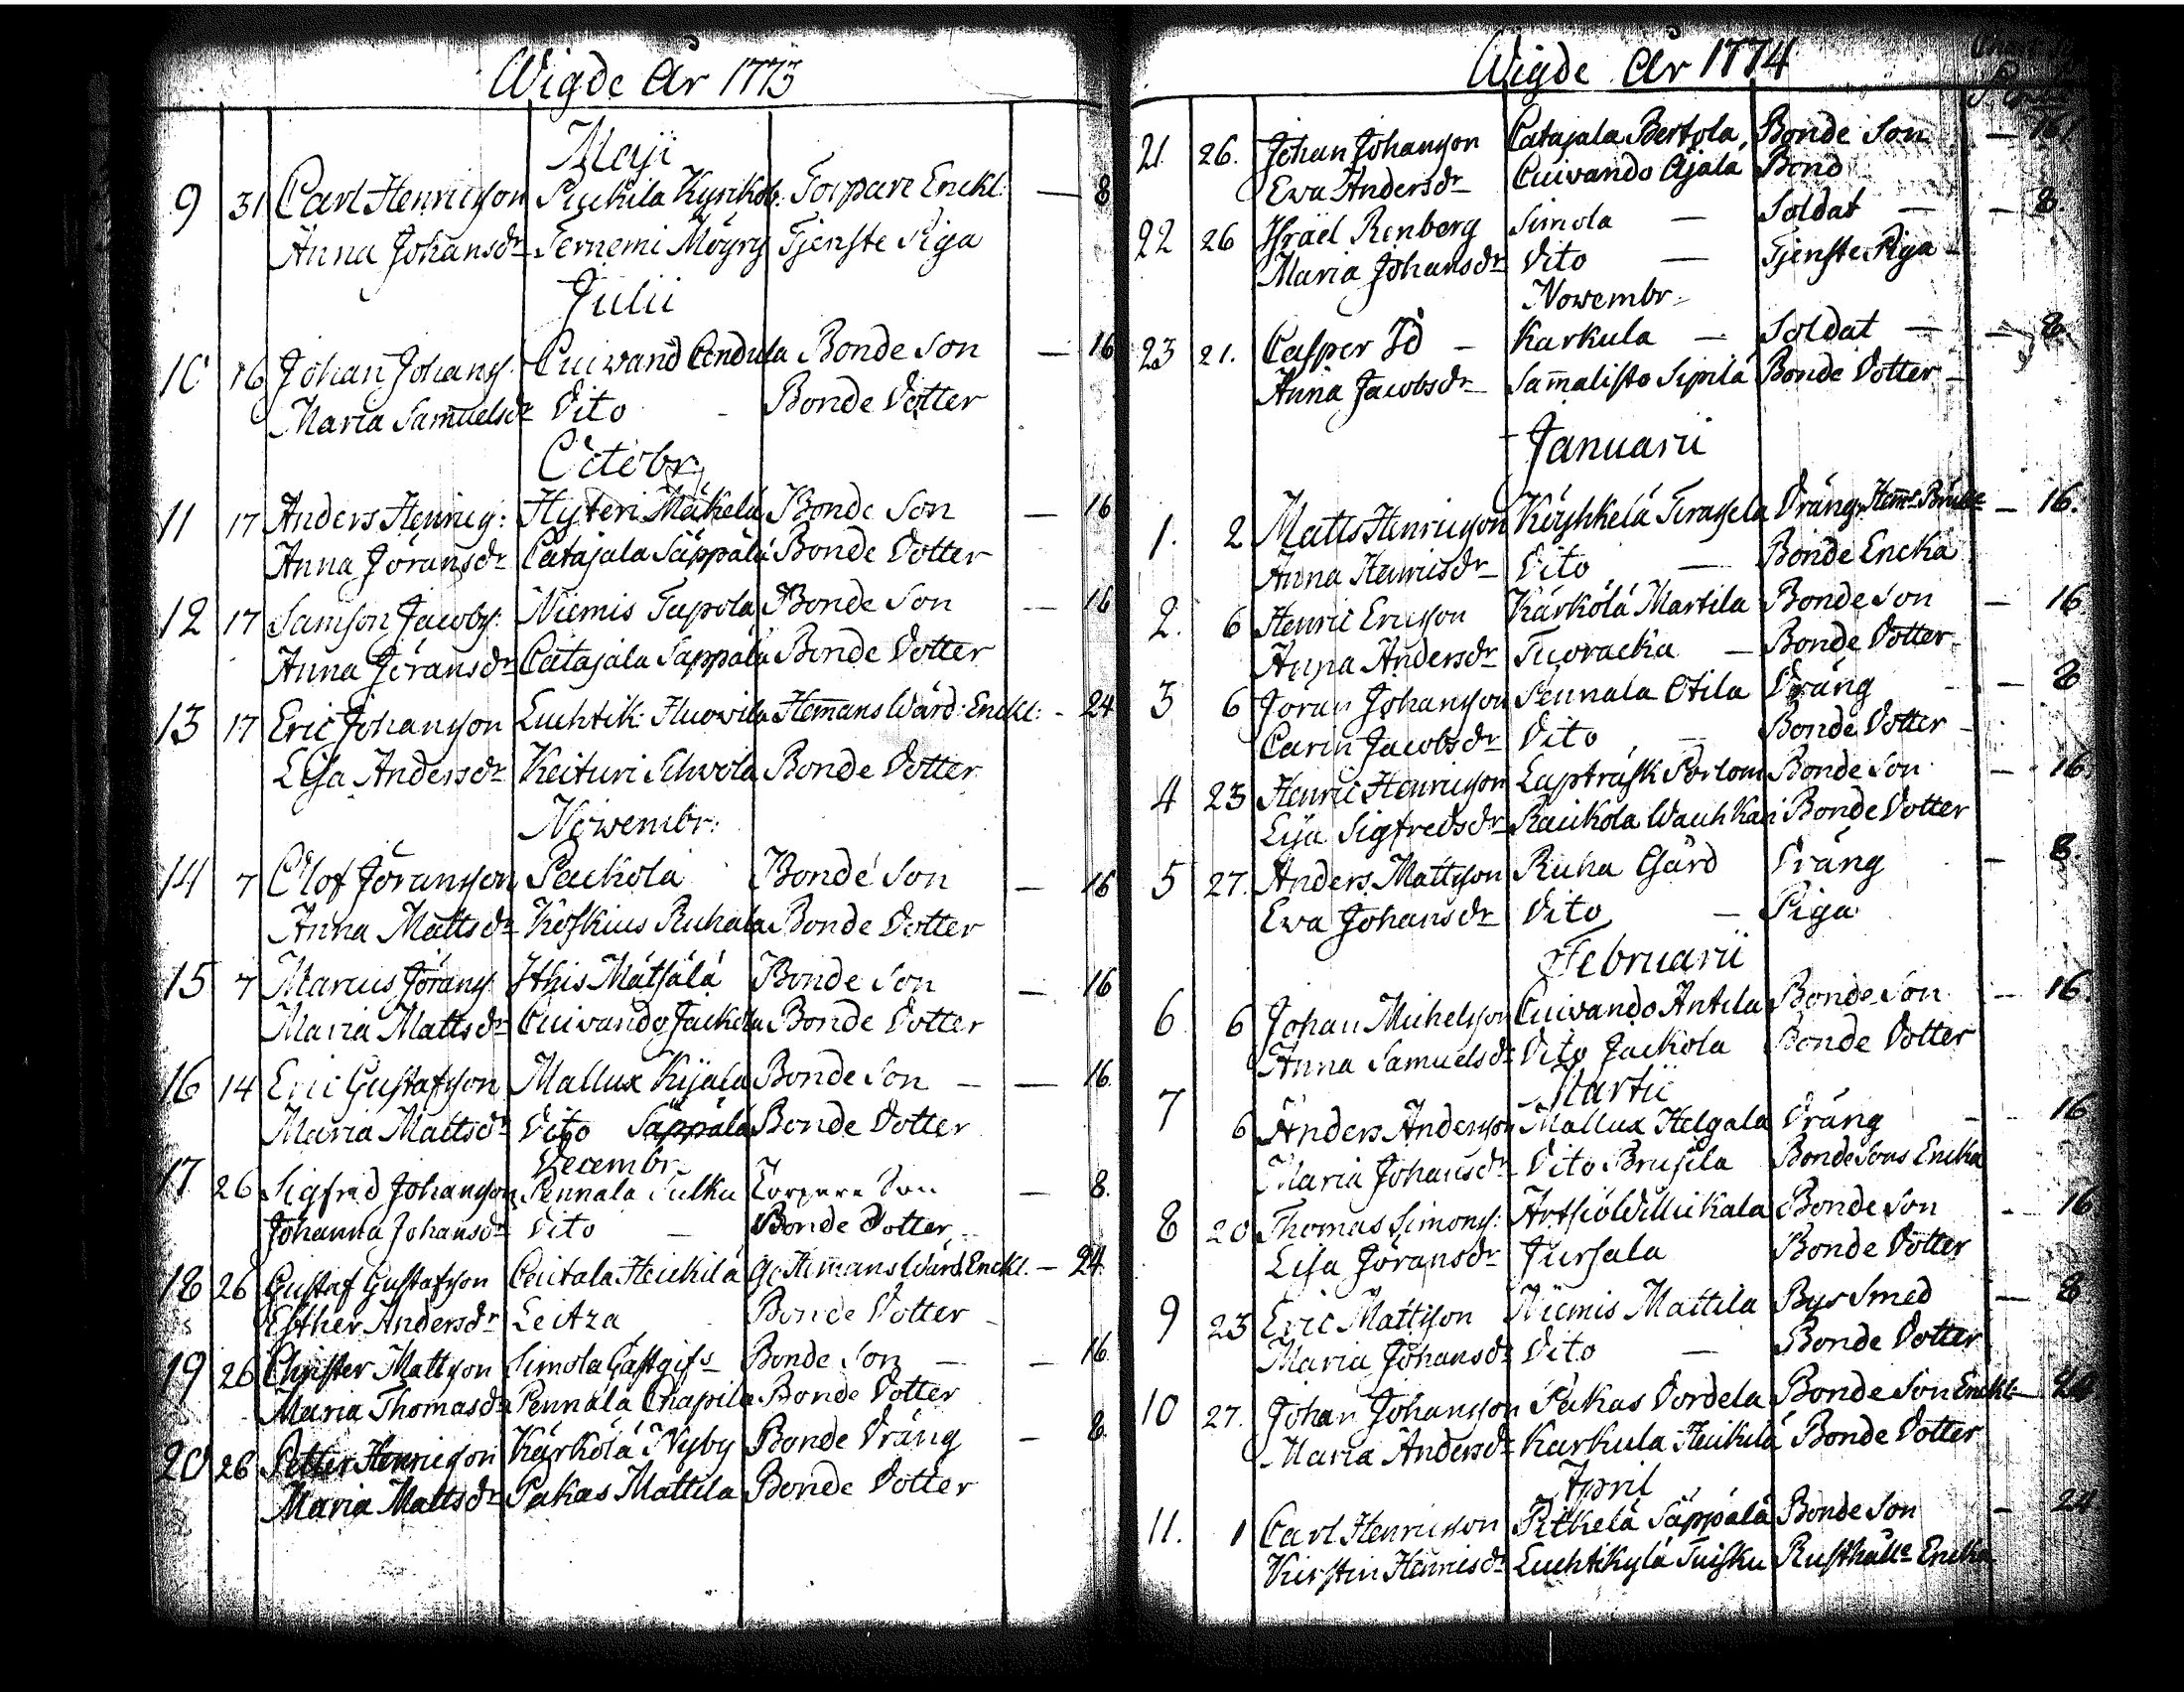 Wigde År 1773
Maji
9 31 Carl Henricsson Puckila Kyrikob. Torpare Enckl. — 8
Anna Johansdr Ternemi Möyry Tjenste Piga
Julii
10 16 Johan Johans. Cuivand Andula Bonde Son — 16
Maria Samuelsdr Dito - Bonde Dotter
Octobr.
11 17 Anders Henrics: Hyteri Mäkelä Bonde Son — 16
Anna Jöransdr Catajala Säppälä Bonde Dotter
12 17 Samson Jacobs: Niemis Tapola Bonde Son — 16
Anna Jöransdr Catajala Säppälä Bonde Dotter
13 17 Eric Johansson Luchtik. Huovila Hemans Wärd: Enckl: - 24
Lisa Andersdr Keituri Schvola Bonde Dotter
Nowembr:
14 7 Olof Jöransson Packola Bonde Son — 16
Anna Mattsdr Koskius Ruhala Bonde Dotter
15 7 Marcus Jörans Ithis Mätsälä Bonde Son — 16
Maria Mattsdr Cuivando Jackola Bonde Dotter
16 14 Eric Gustafsson Mallux Kijala Bonde Son — — 16
Maria Mattsdr Dito Säppälä Bonde Dotter
Decembr.
17 26 Sigfred Johansson Pennala Sulku Torpare Son — 8.
Johanna Johansdr Dito — Bonde Dotter
18 26 Gustaf Gustafsson Cautala Heickilä Hemans Wärd Enckl. — 24
Esther Andersdr Leitza Bonde Dotter
19 26 Christer Mattsson Simola Gästgifs Bonde Son — — 16
Maria Thomasdr Pennala Chapila Bonde Dotter
20 26 Petter Henricsson Kärkölä Nyby Bonde Dräng — 8.
Maria Mattsdr Pakas Mattila Bonde Dotter
Wigde År 1774
21 26. Johan Johansson Catajala Bertola, Bonde Son — 16
Ewa Andersdr Cuivando Äjälä Bond
22 26 Israël Renberg Simola — Soldat — — 8.
Maria Johansdr Dito — Tjenste Piga —
Nowembr.
23 21. Casper Id — Karkula — Soldat — — 8
Anna Jacobsdr Sammalisto Sipilä Bonde Dotter —
Januarii
1. 2 Matts Henricsson Köyhkelä Terasela Dräng — 16.
Anna Henricsdr Dito — Bonde Encka
2. 6 Henric Ericsson Kärkölä Martila Bonde Son — 16
Anna Andersdr Tuoracka — Bonde Dotter
3 6 Joran Johansson Pennala Otila Dräng — 8
Carin Jacobsdr Dito — Bonde Dotter
4 23 Henric Henricsson Lapträsk Porlom Bonde Son — 16
Lisa Sigfredsdr Raickola Wauhkan Bonde Dotter
5 27. Anders Mattsson Ruha Gård Dräng — 8.
Eva Johansdr Dito — Piga
Februarii
6 6 Johan Michelsson Cuivando Antila Bonde Son — 16.
Anna Samuelsdr Dito Jackola Bonde Dotter
Martii
7 6 Anders Andersson Mallux Helgala Dräng — 16
Maria Johansdr Dito Brusila Bonde Sons Encka
8 20 Thomas Simons: Artsiö Willickala Bonde Son - 16
Lisa Jöransdr Jursala Bonde Dotter
9 23 Eric Mattsson Niemis Mattila Bys Smed — 8
Maria Johansdr Dito — Bonde Dotter
10 27. Johan Johansson Pakas Dordela Bonde Son Enckl. 24
Maria Andersdr Karkula Heickilä Bonde Dotter
April
11. 1 Carl Henricsson Pitkelä Säppälä Bonde Son — 24
Kirstin Henricsdr Luchtikylä Tuisku Rusthålls Encka